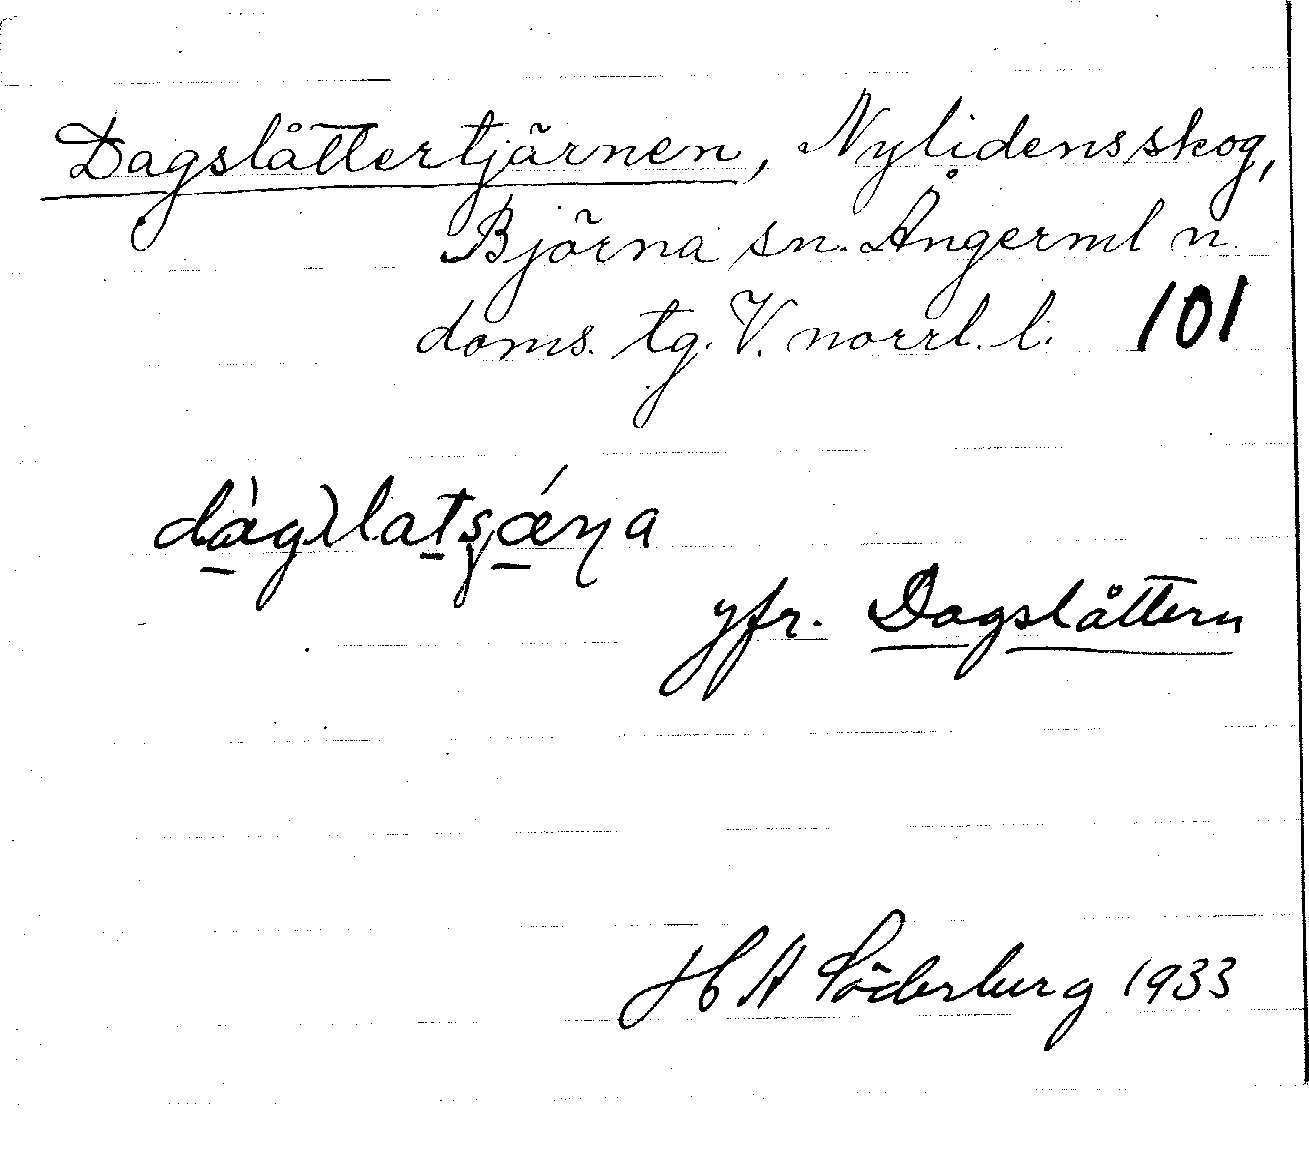 Dagslåttertjärnen, Nylidensskog,
Björna sn. Ångerml n.
doms. tg. V. norrl. l. 101
dàg)latʂǽɳa
jfr. Dagslåttern
H A Söderburg 1933